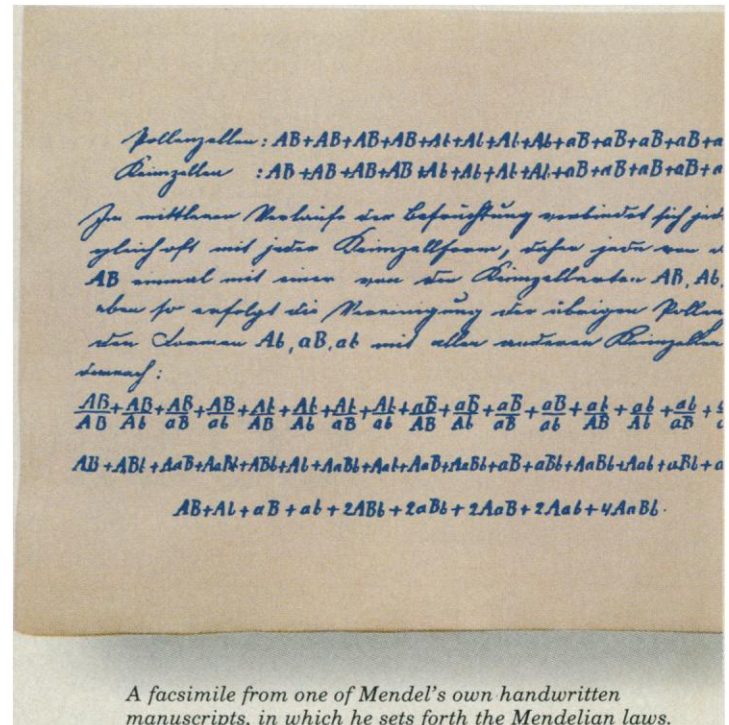 Pollenzellen: AB+AB+AB+AB+Ab+Ab+Ab+Ab+aB+aB+aB+aB+a
Keimzellen : AB+AB+AB+AB+Ab+Ab+Ab+Ab+aB+aB+aB+aB+a
Im mittleren Verlaufe der Befruchtung verbindet sich jed
gleich oft mit jeder Keimzellform, daher jede von d
AB einmal mit einer von den Keimzellarten AB, Ab,
eben so erfolgt die Vereinigung der übrigen Pollen
den Formen Ab, aB, ab mit allen anderen Keimzellen
darnach:
AB/AB + AB/Ab + AB/aB + AB/ab + Ab/AB + Ab/Ab + Ab/aB + Ab/ab + aB/AB + aB/Ab + aB/aB + aB/ab + ab/AB + ab/Ab + ab/aB +
AB+ABb+AaB+AaBb+ABb+Ab+AaBb+Aab+AaB+AaBb+aB+aBb+AaBb+Aab+aBb+a
AB+Ab+aB+ab+2ABb+2aBb+2AaB+2Aab+4AaBb.
A facsimile from one of Mendel's own handwritten
manuscripts, in which he sets forth the Mendelian laws.